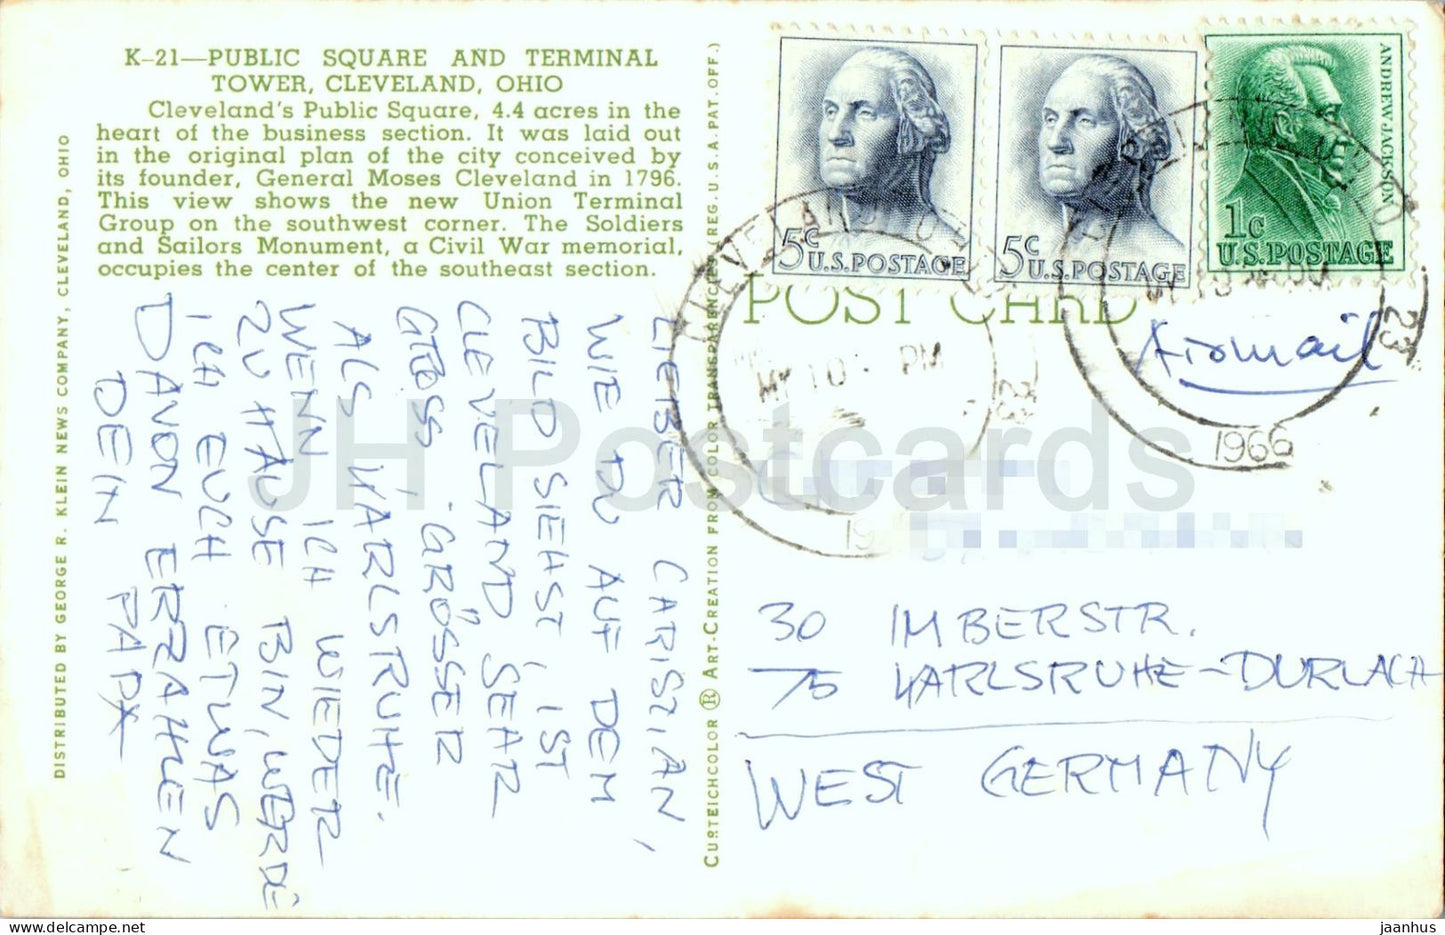 K-21—PUBLIC SQUARE AND TERMINAL
TOWER, CLEVELAND, OHIO
Cleveland's Public Square, 4.4 acres in the
heart of the business section. It was laid out
in the original plan of the city conceived by
its founder, General Moses Cleveland in 1796.
This view shows the new Union Terminal
Group on the southwest corner. The Soldiers
and Sailors Monument, a Civil War memorial,
occupies the center of the southeast section.
DISTRIBUTED BY GEORGE R. KLEIN NEWS COMPANY, CLEVELAND, OHIO
LIEBER CHRISTIAN,
WIE DU AUF DEM
BILD SIEHST, IST
CLEVELAND SEHR
GROSS GRÖSSER
ALS KARLSRUHE.
WENN ICH WIEDER
ZU HAUSE BIN, WERDE
ICH EUCH ETWAS
DAVON ERZÄHLEN
DEIN PAPA
CURTEICHCOLOR ® ART-CREATION FROM COLOR TRANSPARENCY (REG. U.S.A. PAT. OFF.)
POST CARD
5c U.S.POSTAGE
5c U.S.POSTAGE
ANDREW JACKSON
1c
U.S.POSTAGE
CLEVELAND, OHIO
MY 10 PM
23
1966
23
Airmail
30 IMBERSTR.
75 KARLSRUHE-DURLACH
WEST GERMANY
JH Postcards
jaanhus @ www.delcampe.net